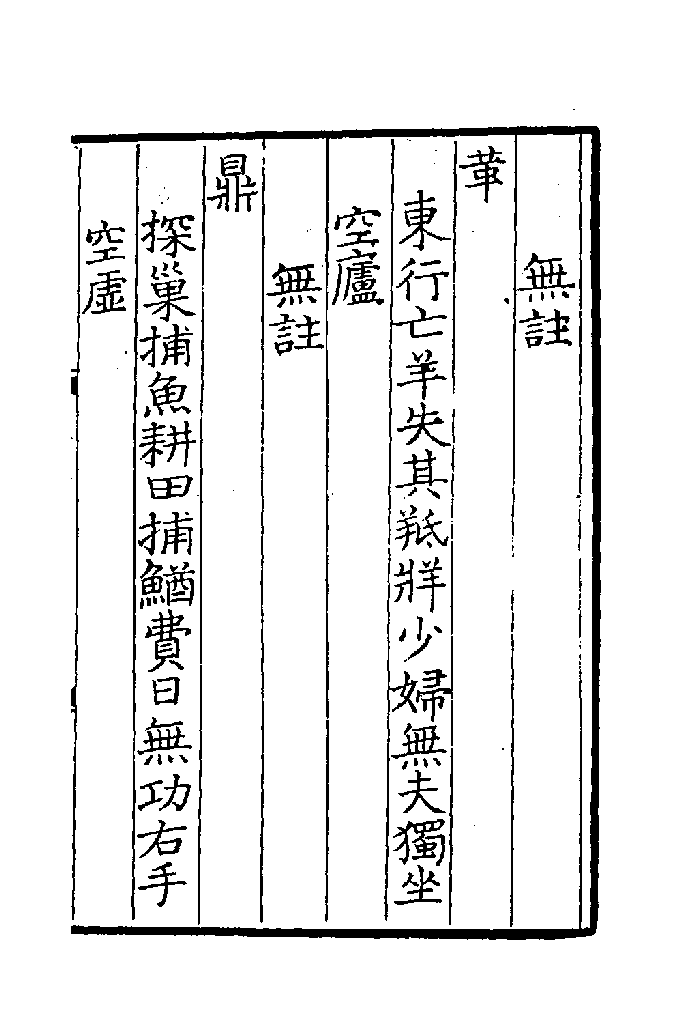 無註
革
東行亡羊失其羝牂少婦無夫獨坐
空廬
無註
鼎
探巢捕魚耕田捕鰌費日無功右手
空虛